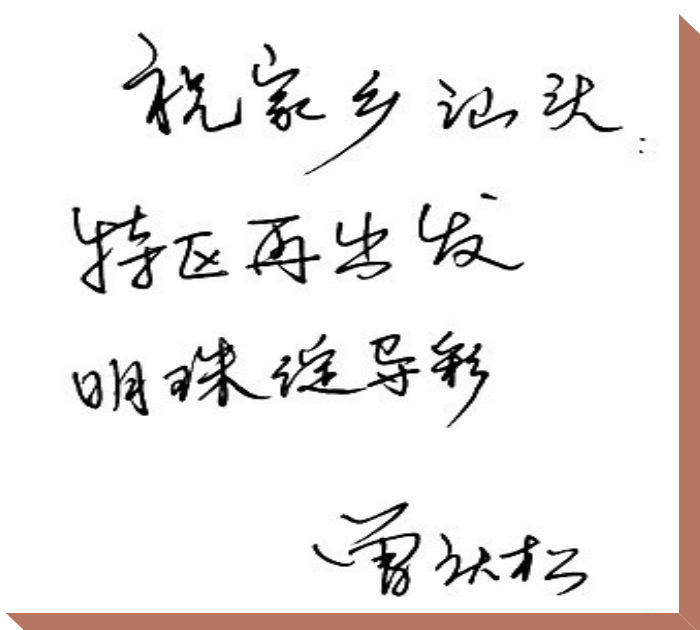 祝家乡汕头:
特区再出发
明珠绽异彩
曾庆松